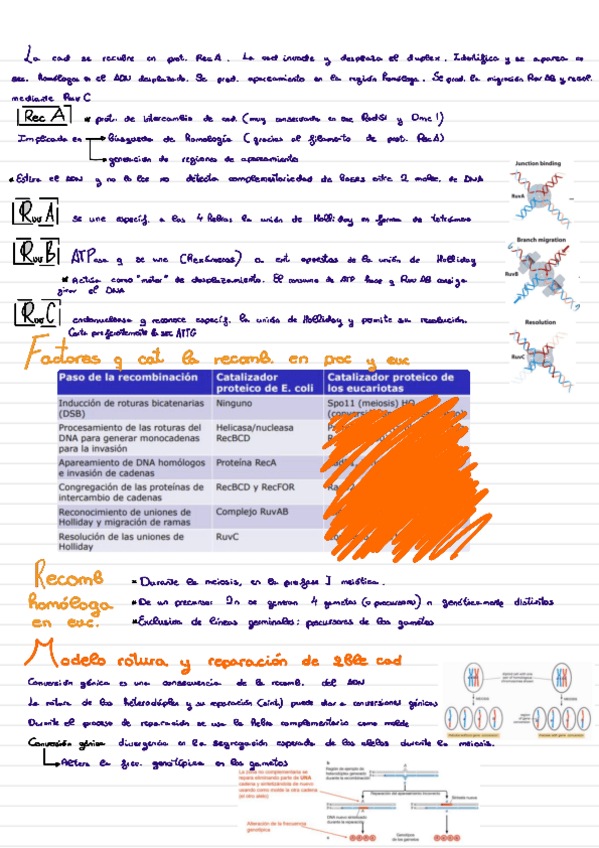 La cad se recubre en prot. RecA. La cad invade y desplaza el duplex. Identifica y se aparea en
sec. homóloga en el ADN desplazado. Se prod. apareamiento en la región homóloga. Se prod. la migración Ruv AB y resol.
mediante Ruv C
Rec A prot. de intercambio de cad. (muy conservada en euc Rad51 y Dmc1)
Implicada en búsqueda de homología (gracias al filamento de prot. RecA)
generación de regiones de apareamiento
Estira el ADN y no lo lee no detecta complementariedad de bases entre 2 molec. de DNA
Junction binding
RuvA
Ruv A se une específ. a las 4 hebras la unión de Holliday en forma de tetrámero
Ruv B ATPasa q se une (hexámeros) a ext opuestos de la unión de Holliday
Actúa como "motor" de desplazamiento. El consumo de ATP hace q Ruv AB consiga
girar el DNA
Branch migration
RuvB
Ruv C endonucleasa q reconoce específ. la unión de Holliday y permite su resolución.
Corta preferentemente la sec ATTG
Resolution
RuvC
Factores q cat. la recomb. en proc y euc
Paso de la recombinación Catalizador proteico de E. coli Catalizador proteico de los eucariotas
Inducción de roturas bicatenarias (DSB) Ninguno Spo11 (meiosis) HO
Procesamiento de las roturas del DNA para generar monocadenas para la invasión Helicasa/nucleasa RecBCD
Apareamiento de DNA homólogos e invasión de cadenas Proteína RecA
Congregación de las proteínas de intercambio de cadenas RecBCD y RecFOR
Reconocimiento de uniones de Holliday y migración de ramas Complejo RuvAB
Resolución de las uniones de Holliday RuvC
Recomb homóloga en euc.
Durante la meiosis, en la profase I meiótica.
De un precursor 2n se generan 4 gametos (o precursores) n genéticamente distintos
Exclusiva de líneas germinales: precursores de los gametos
Modelo rotura y reparación de doble cad
Conversión génica es una consecuencia de la recomb. del ADN
La rotura de los heterodúplex y su reparación (sint.) puede dar a conversiones génicas
Durante el proceso de reparación se usa la hebra complementaria como molde
Conversión génica divergencia en la segregación esperada de los alelos durante la meiosis.
Altera la frec. genotípica en los gametos
La zona no complementaria se
repara eliminando parte de UNA
cadena y sintetizándola de nuevo
usando como molde la otra cadena
Alteración de la frecuencia
genotípica
Región de ejemplo de
heterodúplex generado
durante la recombinación
Reparación del apareamiento incorrecto
Síntesis nueva
DNA nuevo sintetizado
durante la reparación
Genotipos
de los gametos